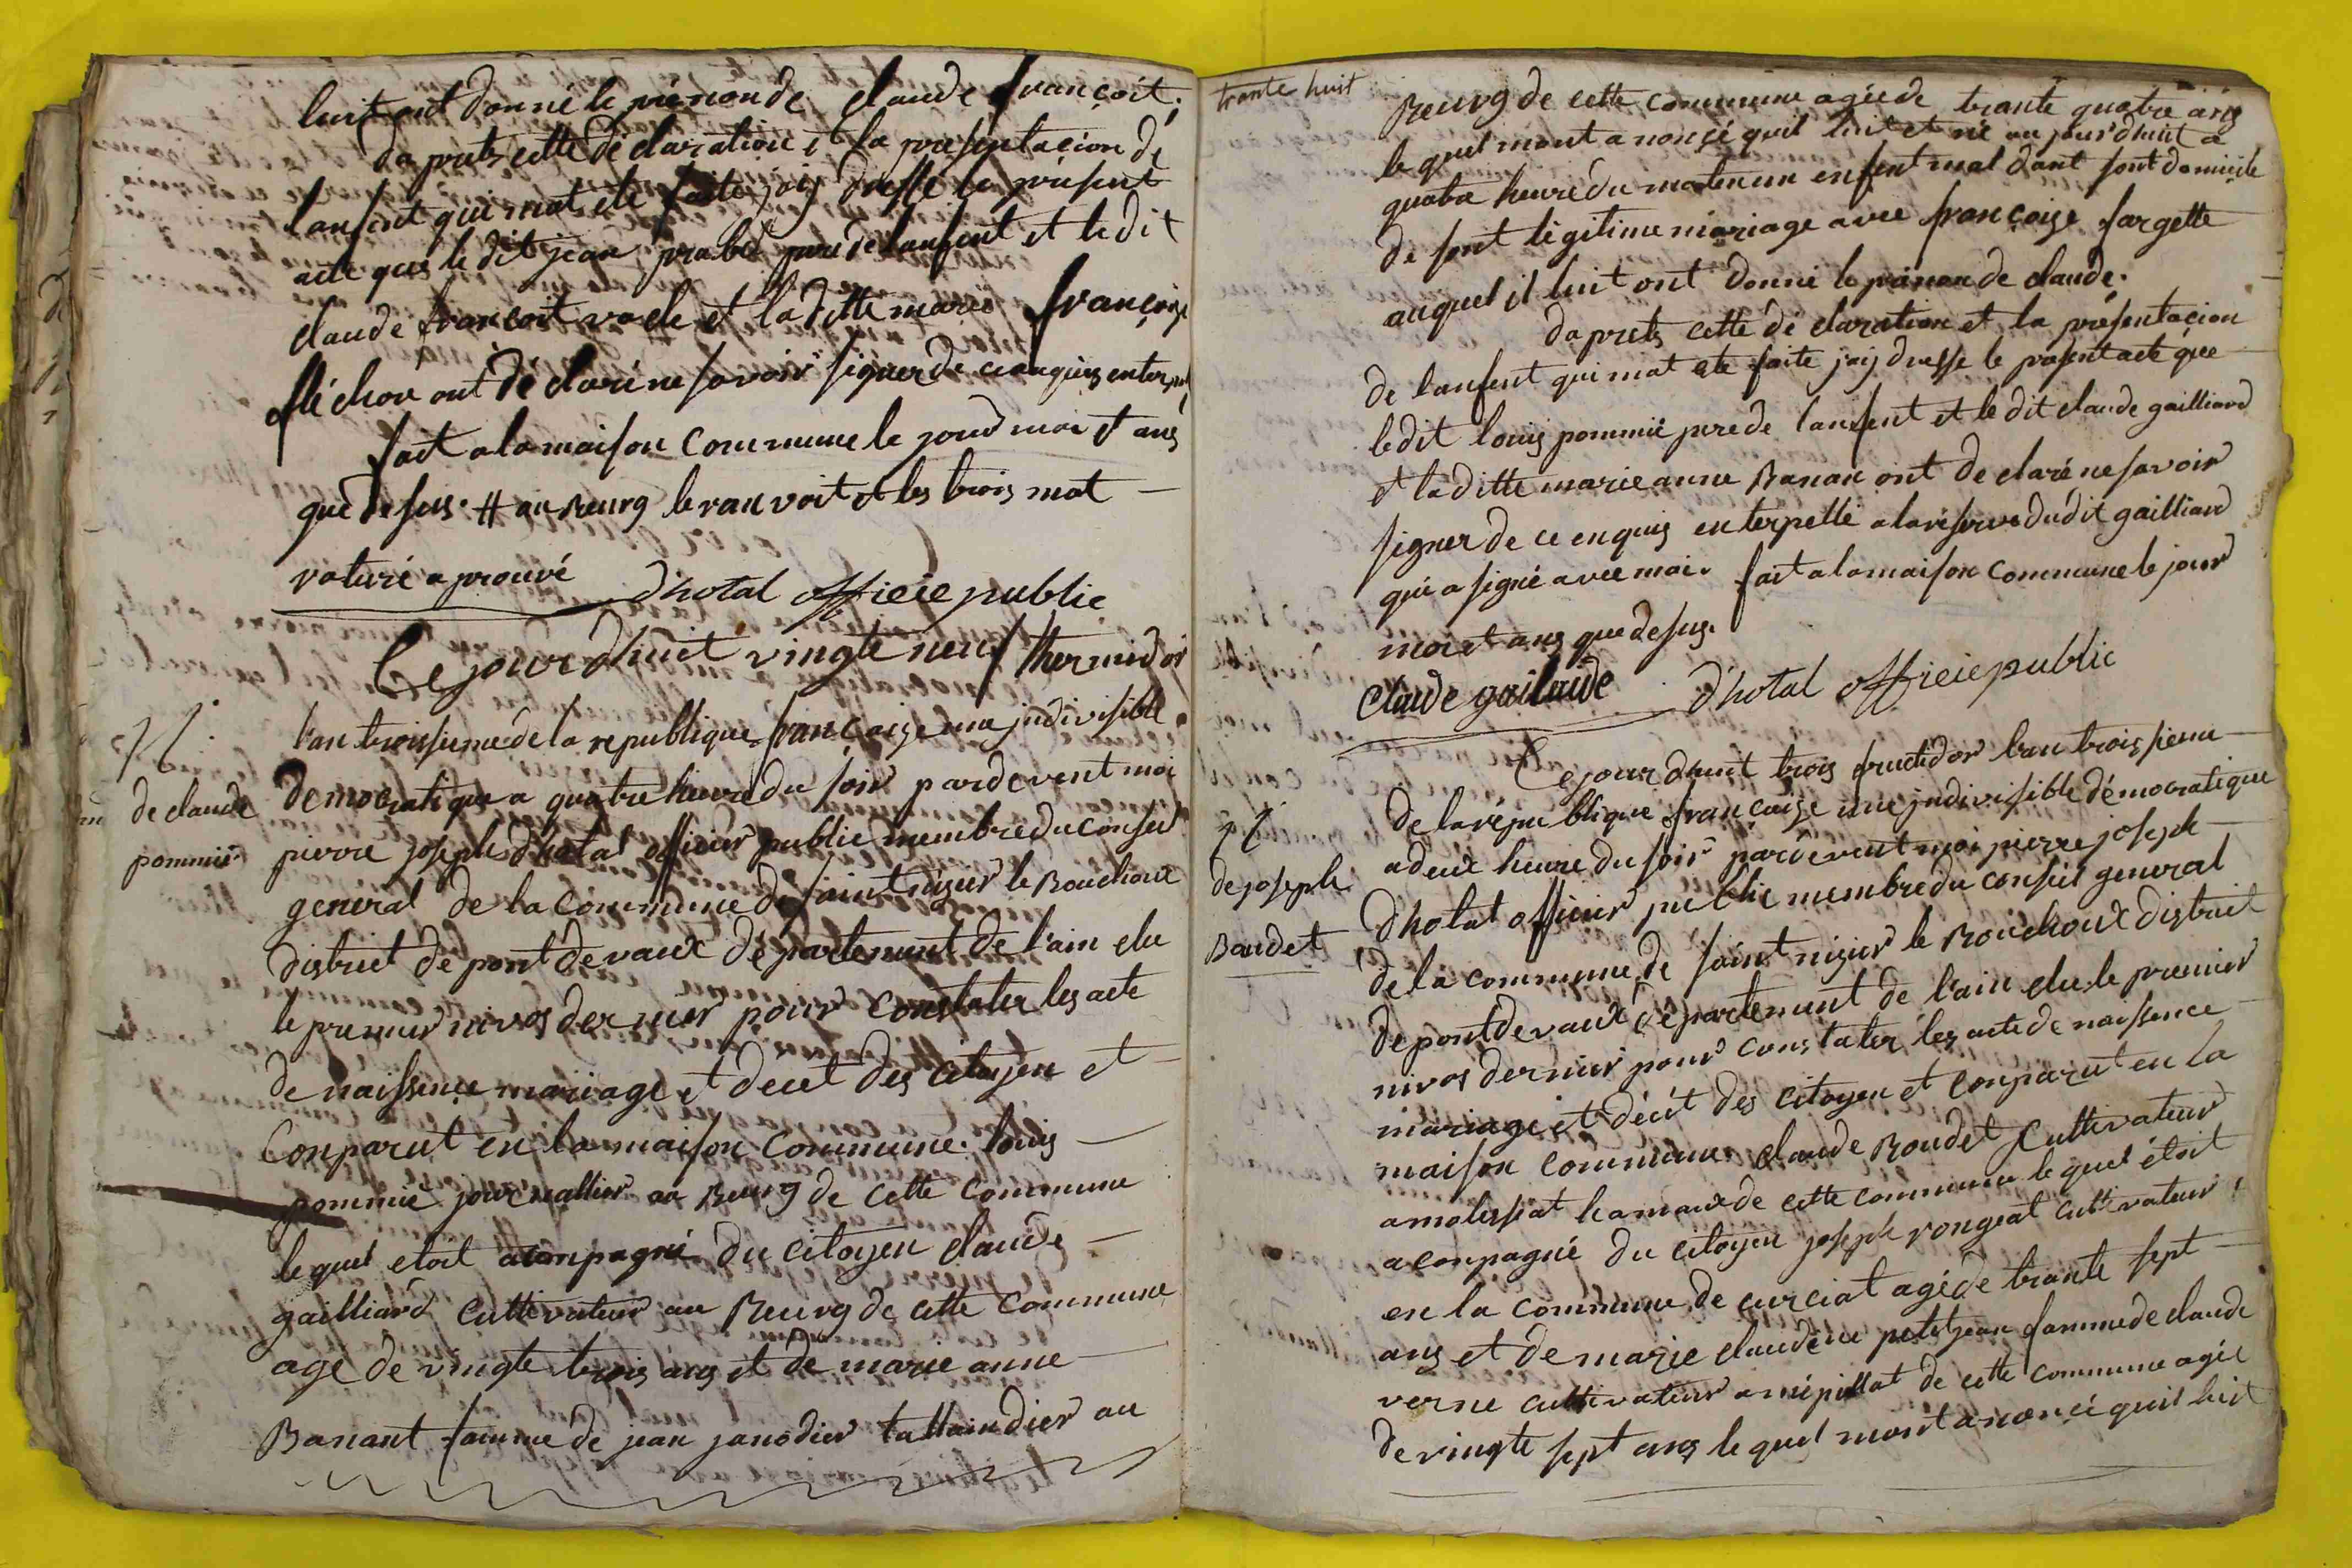 luit ont donné le prénon de claude françoit.
daprets cette déclaration et la presentacion de
lanfent qui mat ete faite jaij dressé le présent
acte que le dit jean prabel pere de lanfent et le dit
claude françoit vacle et la ditte marie françoise
fléchon ont déclaré ne savoir signer de ce enquis enterpel
fait a la maison commune le jour moi et ans
que desus. # au Beurg le ranvoit et les trois mot
raturé aprouvé d'hotal officié public
Ce jourd'huit vingte neuf thermidor
N.
l'an troisieme de la republique françaize une jndivisible
de claude
pommié
democratique a quatre heure du soir par devent moi
pierre joseph d'hotal officier public membre du conseil
general de la commune de saint nizier le Bouchoux
district de pont de vaux département de l'ain elu
le premier nivos dernier pour constater les acte
de naissence mariage et decet des citoyen et
Conparut en la maison commune louis
pommié journallier au Beurg de cette commune
le quel etoit aconpagné du citoyen claude
gailliard cultivateur au Beurg de cette commune
age de vingte trois ans et de marie anne
Banant famme de jean janodier tallaindier au
trante huit
Beurg de cette commune agée de trante quatre ans
le quel mont anonsé quil luit et né au jourd'huit a
quatre heure du maten un enfent mal dant sont domicile
de sont légitime mariage avec françoize fargette
auquel il luit ont donné le prénon de claude.
daprets cette déclaration et la présentacion
de lanfent qui mat ete faite jaij dresse le présent acte que
ledit louis pommié pere de lanfent et le dit claude gailliard
et laditte marie anne Banan ont déclaré ne savoir
signer de ce enquis enterpellé a la réserve dudit gailliard
qui a signé avec moi. fait a la maison commune le jour
moi et ans que desus.
claude gailaide d'hotal officié public
Ce jour d'huit trois fructidor l'an troisieme
N
de la république françaize une jndivisible démocratique
de joseph
Baudet
a deux heure du soir par devent moi pierre joseph
d'hotal officier public membre du conseil general
de la commune de saint nizier le Bouchoux district
de pont de vaux département de l'ain elu le premier
nivos dernier pour constater les acte de naissence
mariage et décét des citoyen et conparut en la
maison commune claude Boudet cultivateur
hamaux de cette commune le quel étoit
aconpagné du citoyen joseph rongeat cultivateur
en la commune de curciat agé de trante sept
ans et de marie claudine petitjean famme de claude
verne cultivateur a mépillat de cette commune agée
de vingte sept ans le quel mont anoncé quil luit